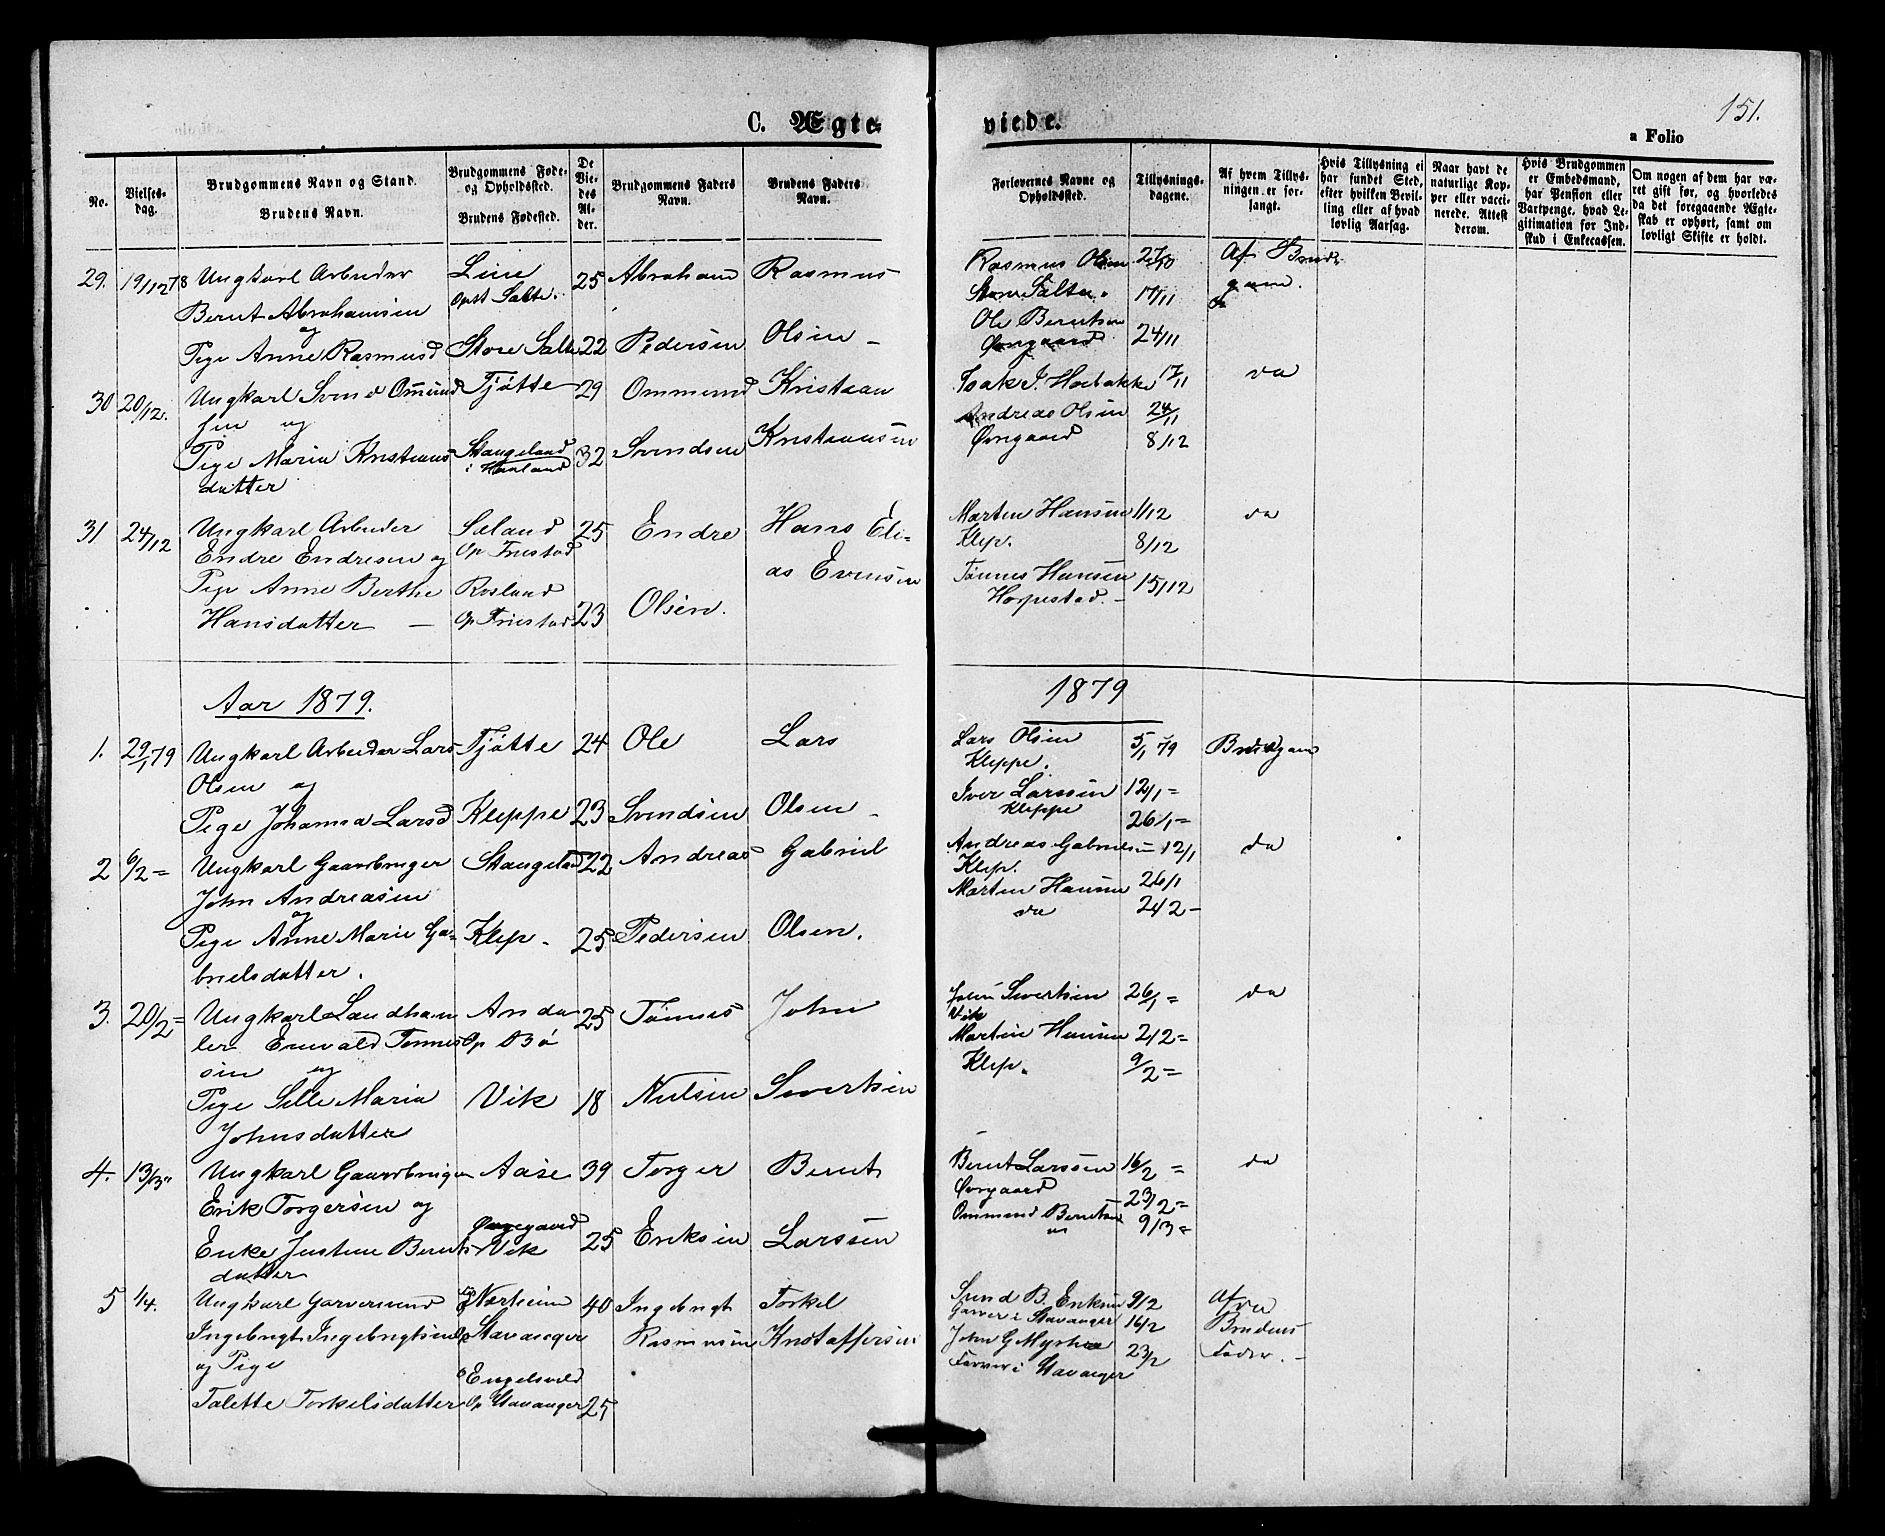 151.
C. Ægte-
viede.
a Folio
No.
Vielses-
dag.
Brudgommens Navn og Stand.
Brudens Navn.
Brudgommens Føde-
og Opholdssted.
Brudens Fødested.
De
Vie-
des
Al-
der.
Brudgommens Faders
Navn.
Brudens Faders
Navn.
Forlovernes Navne og
Opholdssted.
Tillysnings-
dagene.
Af hvem Tillys-
ningen er for-
langt.
Hvis Tillysning ei
har fundet Sted,
efter hvilken Bevil-
ling eller af hvad
lovlig Aarsag.
Naar havt de
naturlige Kop-
per eller vacci-
nerede. Attest
derom.
Hvis Brudgommen
er Embedsmand,
har Pension eller
Vartpenge, hvad Le-
gitimation for Ind-
skud i Enkecassen.
Om nogen af dem har væ-
ret gift før, og hvorledes
da det foregaaende Ægte-
skab er ophørt, samt om
lovligt Skifte er holdt.
29. 19/12 78 Ungkarl Arbeider Line 25 Abraham Rasmus Rasmus Olsen 27/10 Af Brud-
Bernt Abrahamsen Opst Salte. Store Salte. 17/11 gom.
og Ole Berntsen
Pige Anne Rasmusd Store Salte 22 Pedersen Olsen - Øvregaard 24/11
30 20/12. Ungkarl Svend Ommund Tjøtte 29 Ommund Kristian Isak J. Hobakke 17/11 da
sen og Andreas Olsen 24/11
Pige Maria Kristians Stangeland 32 Svendsen Kristiansen Øvregaard 8/12
datter i Høiland
31 24/12 Ungkarl Arbeider Sæland 25 Endre Hans Eli- Marten Hansen 1/12 da
Endre Endresen og Op Friestad as Evensen Klep. 8/12
Pige Anne Berthe Rosland Tønnes Hansen 15/12
Hansdatter - Op Friestad 23 Olsen. Horpestad. -
Aar 1879. 1879
1. 29/1 79 Ungkarl Arbeider Lars Tjøtte 24 Ole Lars Lars Olsen 5/1 79 Brudgom
Olsen og Kleppe.
Iver Larssen 12/1 =
Pige Johanna Larsd Kleppe 23 Svendsen Olsen - Kleppe 26/1 =
2 6/2 = Ungkarl Gaardbruger Stangeland 22 Andreas Gabriel Andreas Gabrielsen 12/1 da
John Andreasen Klep. 26/1
og Marten Hansen
Pige Anne Marie Ga- Klep - 25 Pedersen Olsen. da 2/2 -
brielsdatter.
3. 20/2 = Ungkarl Landhand Anda 25 Tønnes John John Sivertsen 26/1 = da
ler Enevald Tønnes Op Bø Vik
sen og Martin Hansen 2/2 =
Pige Sille Maria Vik 18 Nielsen Sivertsen Klep. 9/2 =
Johnsdatter
4. 13/3 " Ungkarl Gaardbruger Aase 39 Torger Bernt Bernt Larssen 16/2 = da
Erik Torgersen og Øvregaard 23/2 =
Enke Justine Bernts Øvregaard Vik 25 Eriksen Larssen Ommund Berntsen 9/3 =
datter
5 1/4. Ungkarl Garversvend Nærheim 40 Ingebrigt Torkel Svend B. Eriksen 9/2 Af da
Ingebrigt Ingebrigtsen Op Stavanger Rasmusen Kristoffersen Garver i Stavanger 16/2 Brudens
og Pige John G Myhre 23/2 Fader. -
Engelsvold Farver i Stavanger
Talette Torkelsdatter Op Stavanger 25